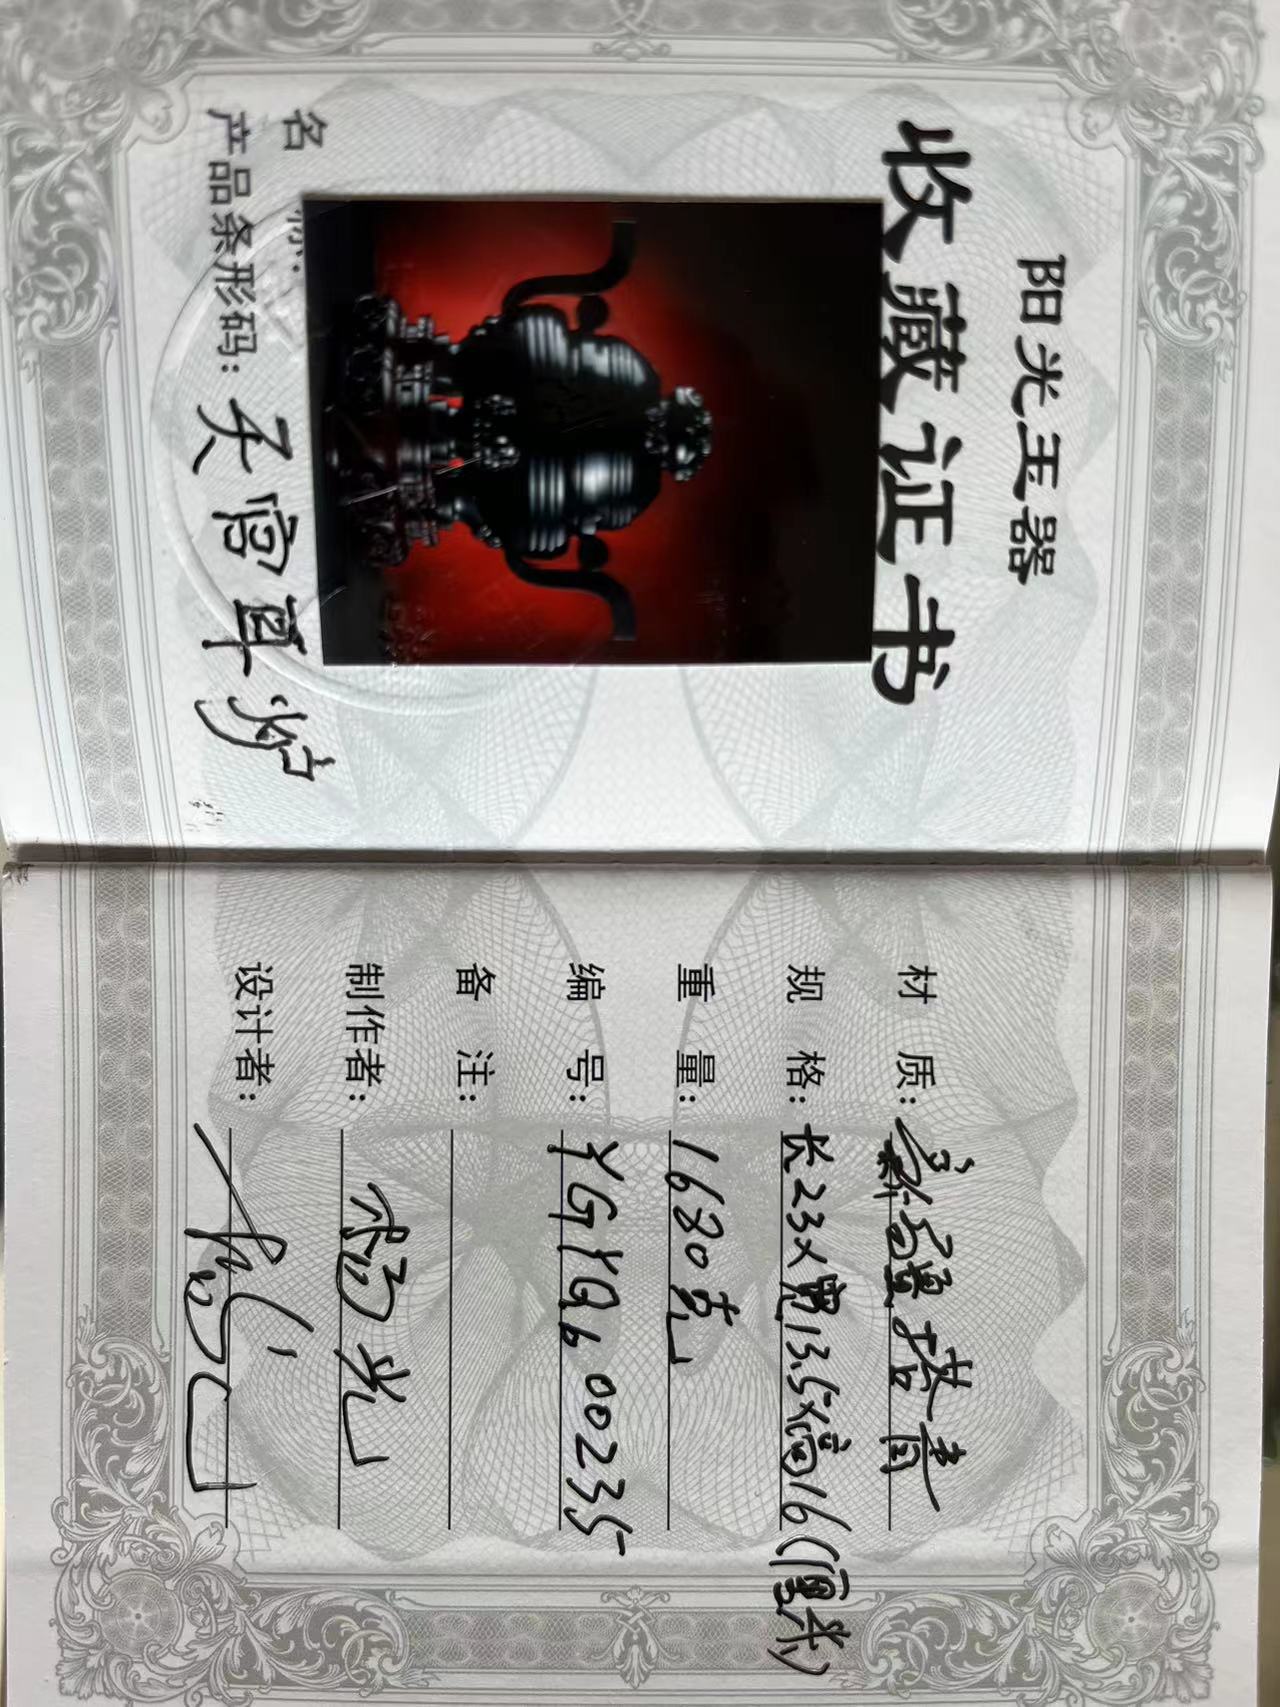 阳光玉器
收藏证书
名 称:
产品条形码: 天官耳炉
材 质: 新疆塔青
规 格: 长23x宽13.5x高16(厘米)
重 量: 1680克
编 号: YGYQb00235
备 注:
制作者: 杨光
设计者: 杨光